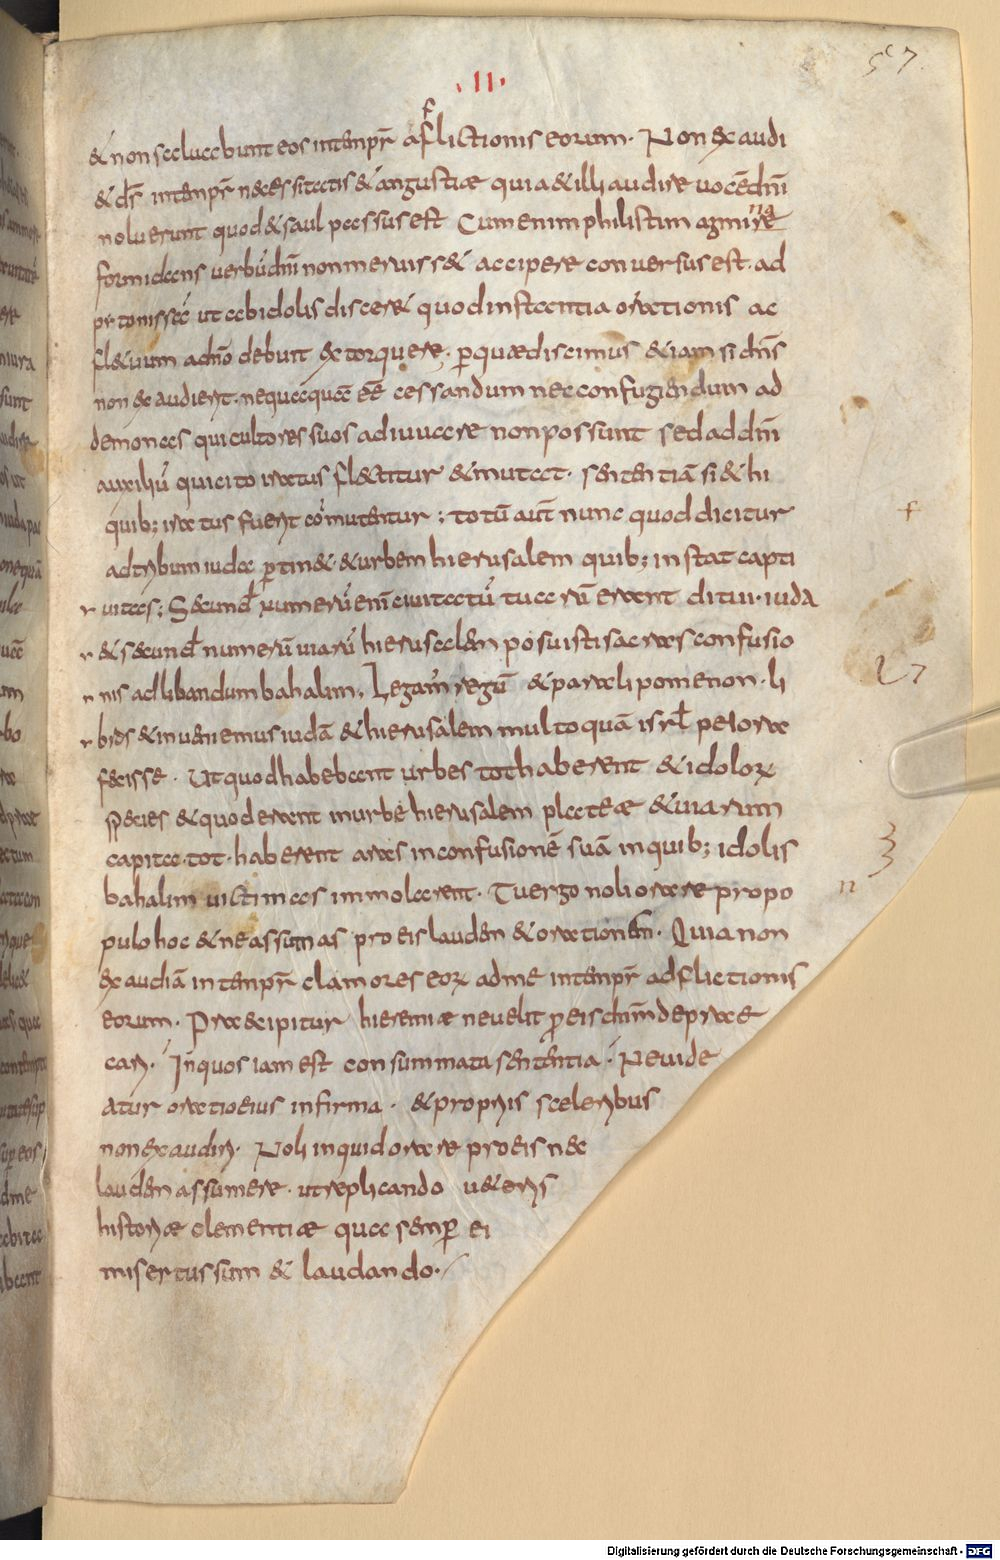 57
·II·
f
& non saluabunt eos in tempr̄ aflictionis eorum. Non exaudi
& dr̄ in tempr̄ necessitatis & angustiae quia & illi audire uocē dn̄i
noluerunt quod & saul passus est Cum enim philistim agmina
formidans uerbū dn̄i non meruiss& accipere conuersus est. ad
ut ab idolis discer& quod instantia orationis ac
fl&uum adn̄o debuit extorquere. p quae discimus &iam si dn̄s
non exaudierit. nequaquā eē cessandum nec confugiendum ad
demonas qui cultores suos adiuuare non possunt sed ad dn̄i
auxiliū qui cito iratus flectitur & mutat. sententiā si & hi
quib; iratus fuerit cōmutentur; totū aut̄ nunc quod dicitur
ad tribum iudae ptin& & urbem hierusalem quib; instat capti
r uitas; Secund̄ numerū eni ciuitatū tuarū erant dii tui. iuda
r & secund̄ numerū uiarū hierusalem posuisti sacras confusio
r nis ad libandum bahalim; Legam regū & paralipomenon. li
r bros & inueniemus iudā & hierusalem multo quā isrl̄ peiora
fecisse. Ut quod habebant urbes tot haberent & idolorum
species & quod erant in urbe hierusalem plateae & uiarum
capita. tot. haberent aras in confusionē suā in quib; idolis
bahalim uictimas immolarent. Tu ergo noli orare pro po
pulo hoc & ne assumas pro eis laudem & orationem. Quia non
exaudiā in tempr̄ clamores eorum ad me in tempr̄ adflictionis
eorum. Praecipitur hieremiae ne uelit p eis dn̄m deprae
cari. In quos iam est consummata sententia. Ne uide
atur oratio eius infirma. & propriis sceleribus
non exaudiri. Noli inquid orare pro eis nec
laudem assumere. ut replicando ueteris
historiae clementiae quae semp ei
misertus sum & laudando.
Digitalisierung gefördert durch die Deutsche Forschungsgemeinschaft - DFG